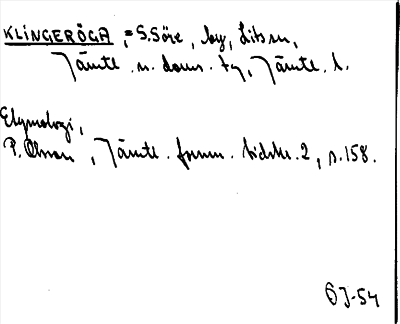 KLINGERÖGA, = S. Söre, by, Lits sn,
Jämtl. n. doms. tg, Jämtl. l.
Etymologi,
P. Olsson, Jämtl. fornm. tidskr. 2, s. 158.
ÖJ-54